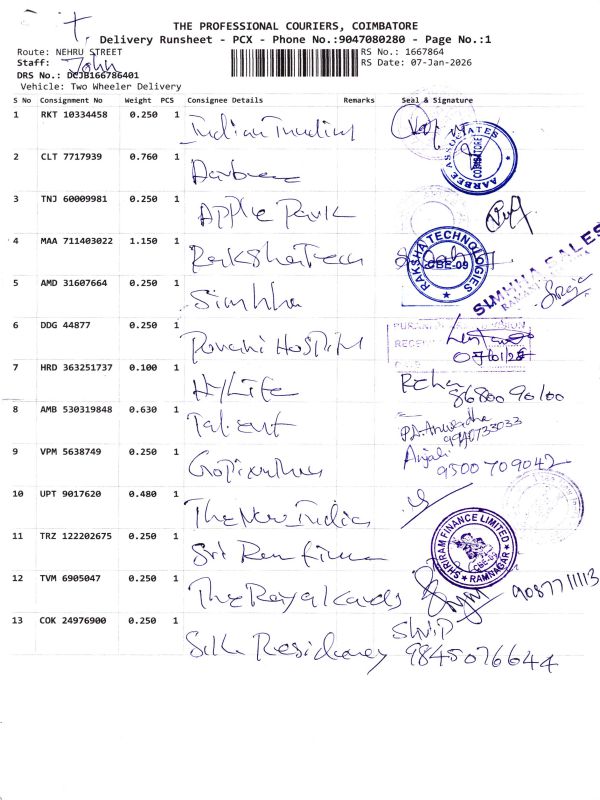 THE PROFESSIONAL COURIERS, COIMBATORE
Delivery Runsheet - PCX - Phone No.:9047080280 - Page No.:1
Route: NEHRU STREET
RS No.: 1667864
Staff: John
RS Date: 07-Jan-2026
DRS No.: DCJB166786401
Vehicle: Two Wheeler Delivery
S No Consignment No Weight PCS Consignee Details Remarks Seal & Signature
1 RKT 10334458 0.250 1 Indian
AARBEE ASSOCIATES COIMBATORE
2 CLT 7717939 0.760 1
3 TNJ 60009981 0.250 1 Apple Park
4 MAA 711403022 1.150 1 Raksha Tech
RAKSHA TECHNOLOGIES CBE-09
SIMHHA SALES
5 AMD 31607664 0.250 1 Simhha
6 DDG 44877 0.250 1 Hospital
7 HRD 363251737 0.100 1 Hylife
Rekha
86800 90100
8 AMB 530319848 0.630 1 Talent
P.D. Anuradha
9940733033
9 VPM 5638749 0.250 1
Anjali
9500709042
10 UPT 9017620 0.480 1 The New India
11 TRZ 122202675 0.250 1 Sri Ram
SHRIRAM FINANCE LIMITED CBE-09 RAMNAGAR
12 TVM 6905047 0.250 1 The Royal Cards
9087711113
13 COK 24976900 0.250 1 Silk Residency
9845076644